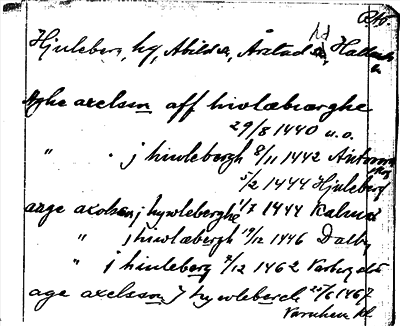 Hjuleberg, by, Abilds, Årstads, Hallands
Aghe axelson aff hiwlæbærghe
29/8 1440 u.o.
" j hiulebergh 8/11 1442
5/2 1444 Hjuleberg
axelson j hywleberghe 1/7 1444 Kalmar
" j hiwlæbergh 19/12 1446 Dalby
" j hiuleberg 7/12 1462
age axelsson j hywleberch 25/6 1467